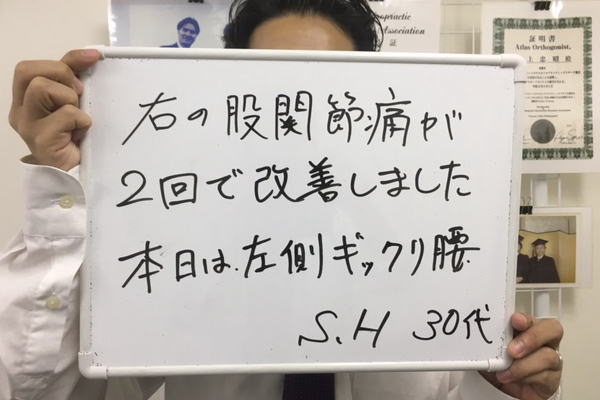 右の股関節痛が
2回で改善しました
本日は左側ギックリ腰
S.H 30代
証
証明書
Atlas Orthogonist.
上忠昭殿